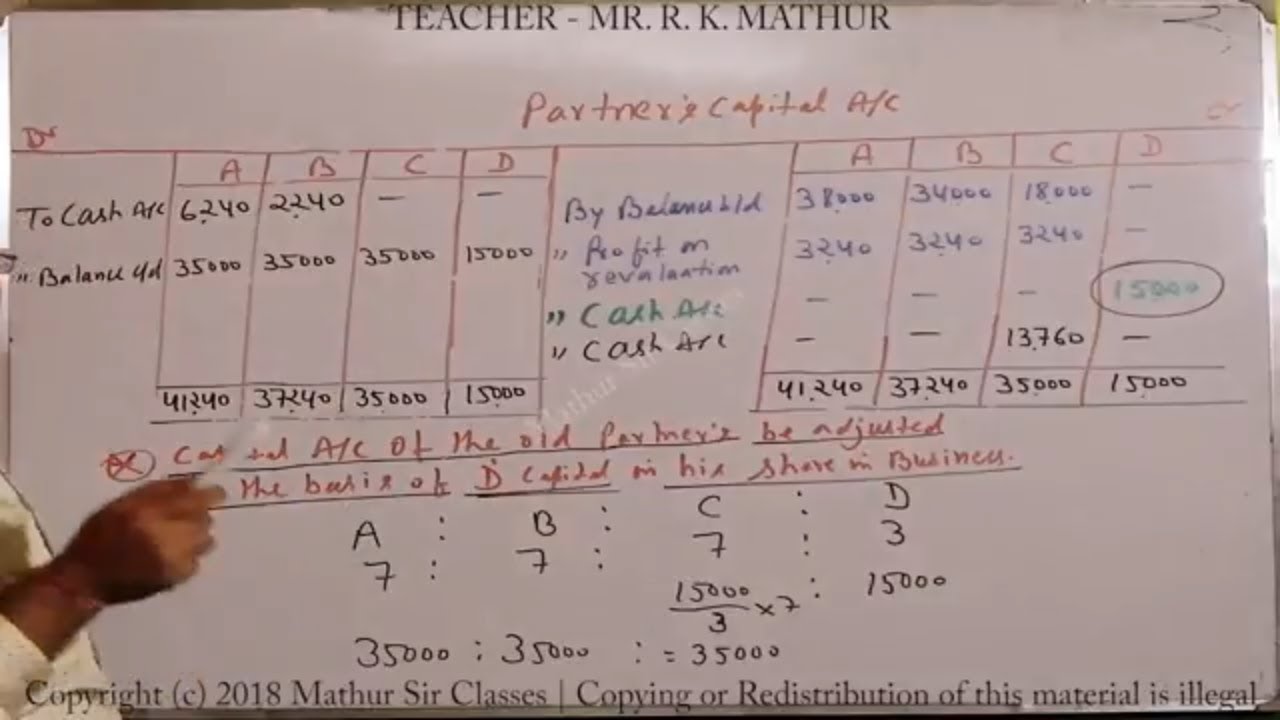 TEACHER - MR. R. K. MATHUR
Partner's Capital A/C
Dr Cr
A B C D A B C D
To Cash A/C 6,240 2,240 — — By Balance b/d 38,000 34,000 18,000 —
" Balance c/d 35000 35000 35000 15000 " Profit on revaluation 3,240 3,240 3,240 —
" Cash A/c — — — 15000
" Cash A/c — — 13,760 —
41,240 37,240 35,000 15,000 41,240 37,240 35,000 15,000
A/C of the old Partner's be adjusted
the basis of D Capital in his share in Business.
A : B : C : D
7 : 7 : 7 : 3
15000/3 ×7 : 15000
35000 : 35000 : = 35000
Mathur Sir
Copyright (c) 2018 Mathur Sir Classes | Copying or Redistribution of this material is illegal